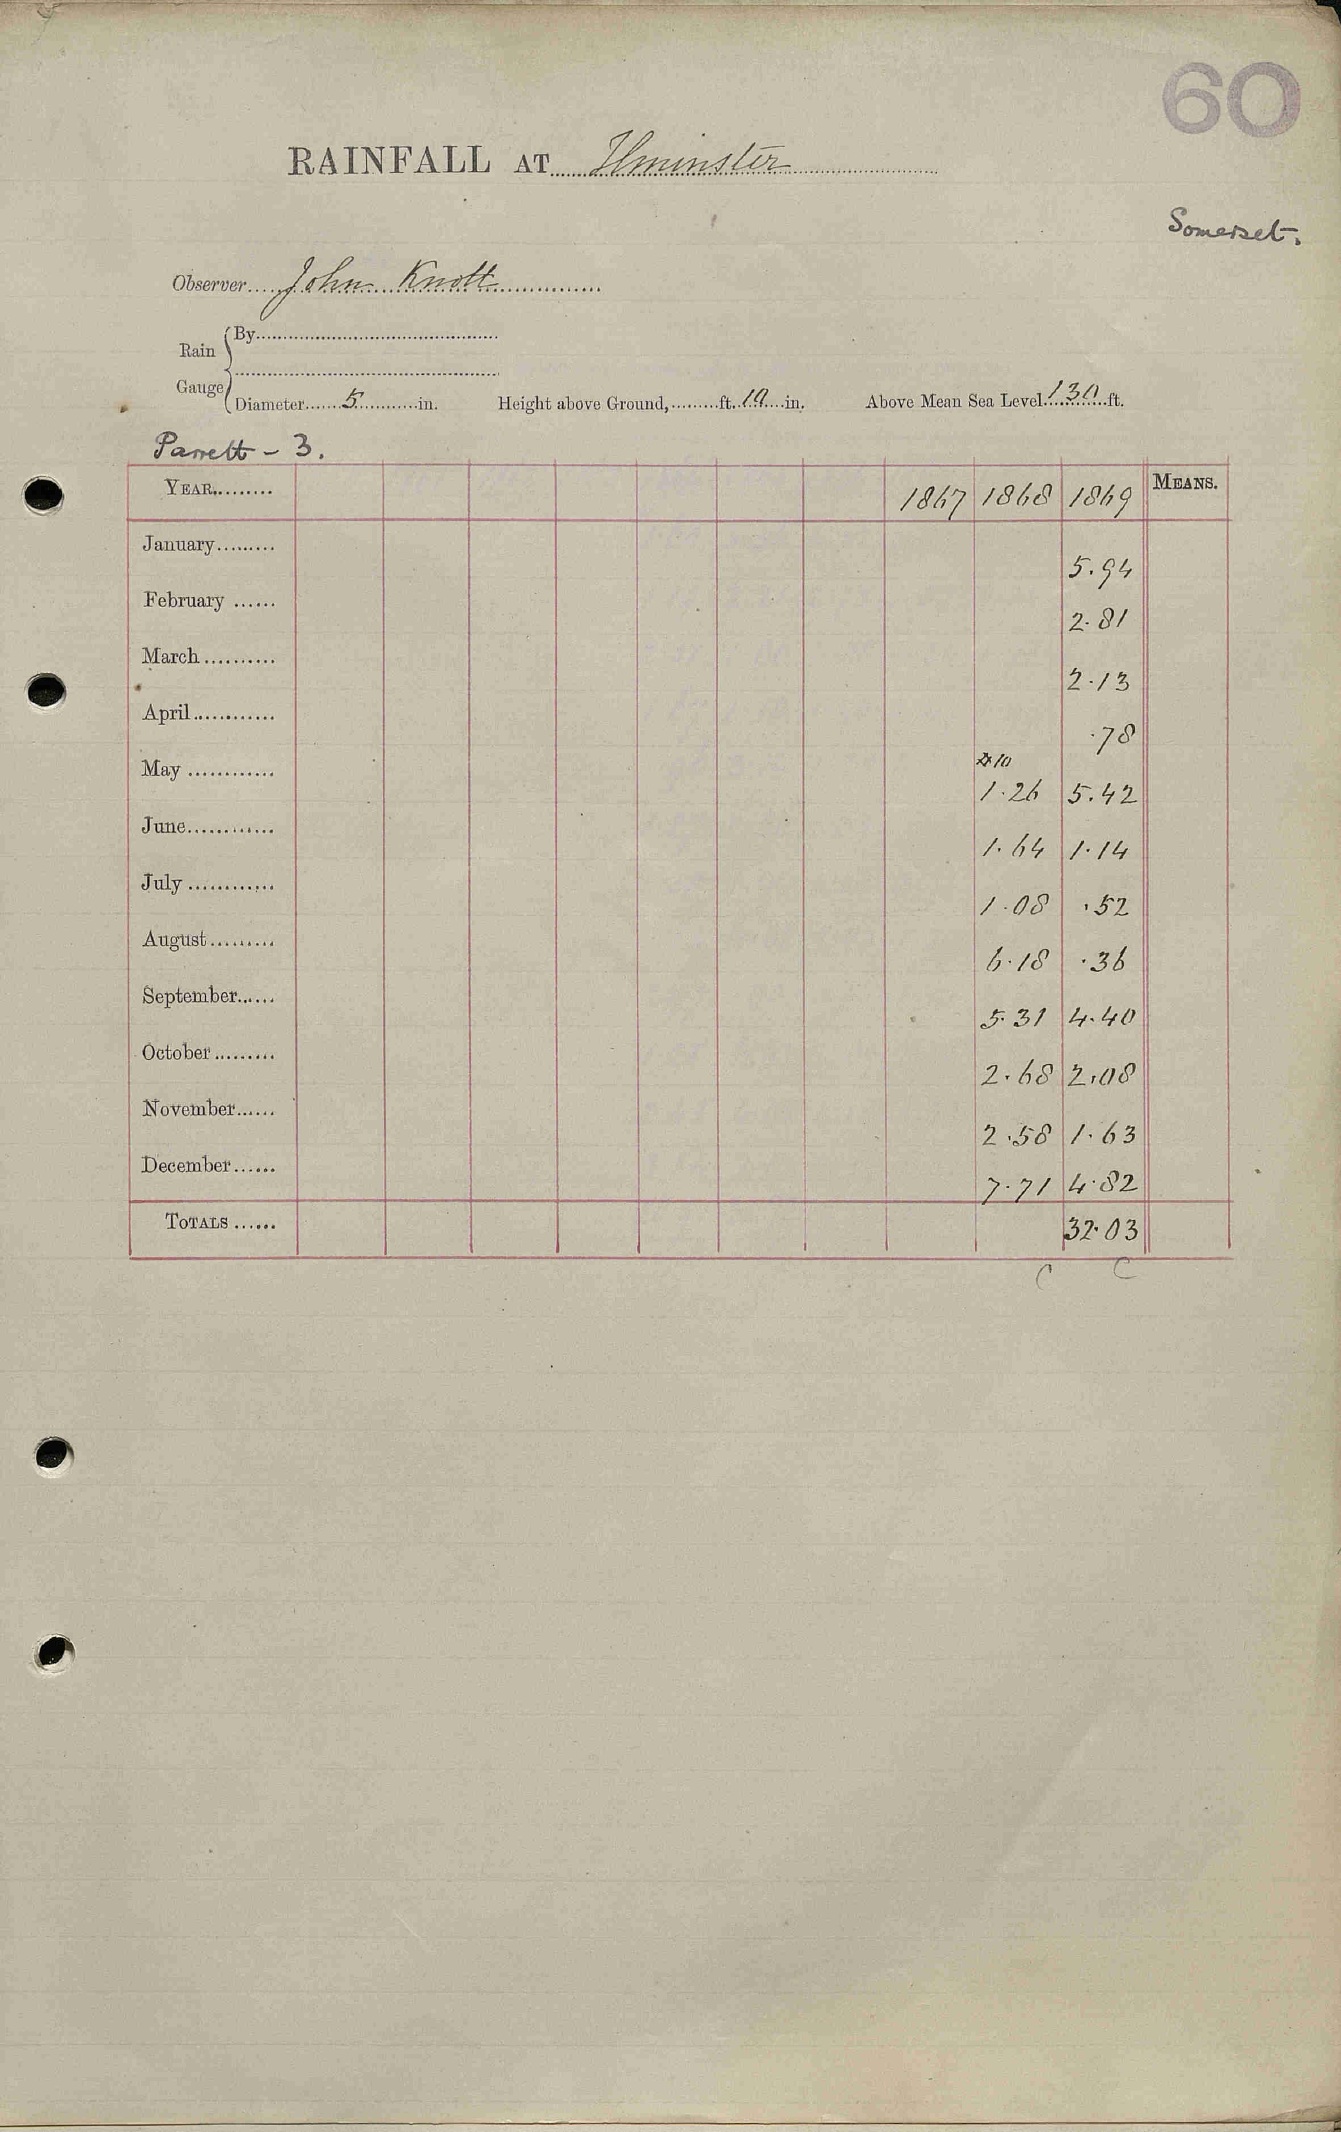 60
RAINFALL AT Ilminster
Somerset.
Observer John Knott
By
Rain
Gauge
Diameter 5 in. Height above Ground, ft. 10 in. Above Mean Sea Level 130 ft.
Parrett - 3.
YEAR 1867 1868 1869 MEANS.
January 5.94
February 2.81
March 2.13
April .78
10
May 1.26 5.42
June 1.64 1.14
July 1.08 .52
August 6.18 .36
September 5.31 4.40
October 2.68 2.08
November 2.58 1.63
December 7.71 4.82
TOTALS 32.03
C C